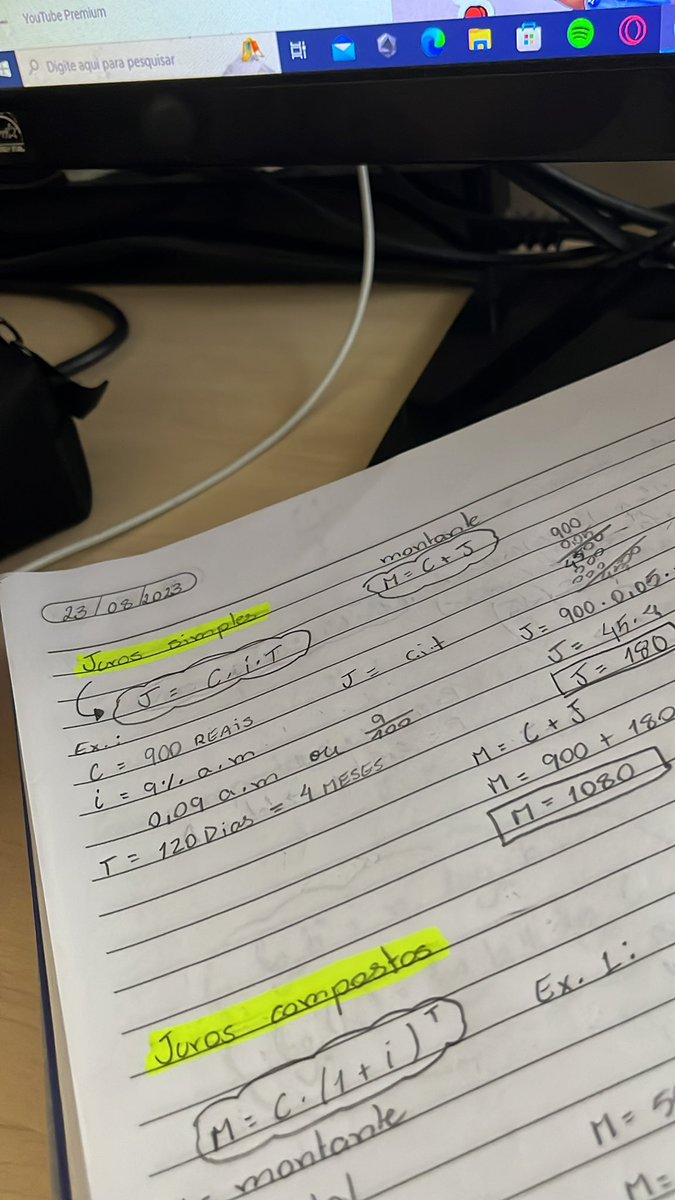 YouTube Premium
Digite aqui para pesquisar
23/08/2023
montante
M = C + J
Juros simples
J = C.i.T
J = c.i.t
Ex.:
C = 900 REAIS
i = 9% a.m
0,09 a.m ou 9/100
T = 120 Dias = 4 MESES
900
J = 900.0,05.
J = 45.4
J = 180
M = C + J
M = 900 + 180
M = 1080
Juros compostos
M = C.(1+i)^T
montante
Ex. 1:
M = 5
M =